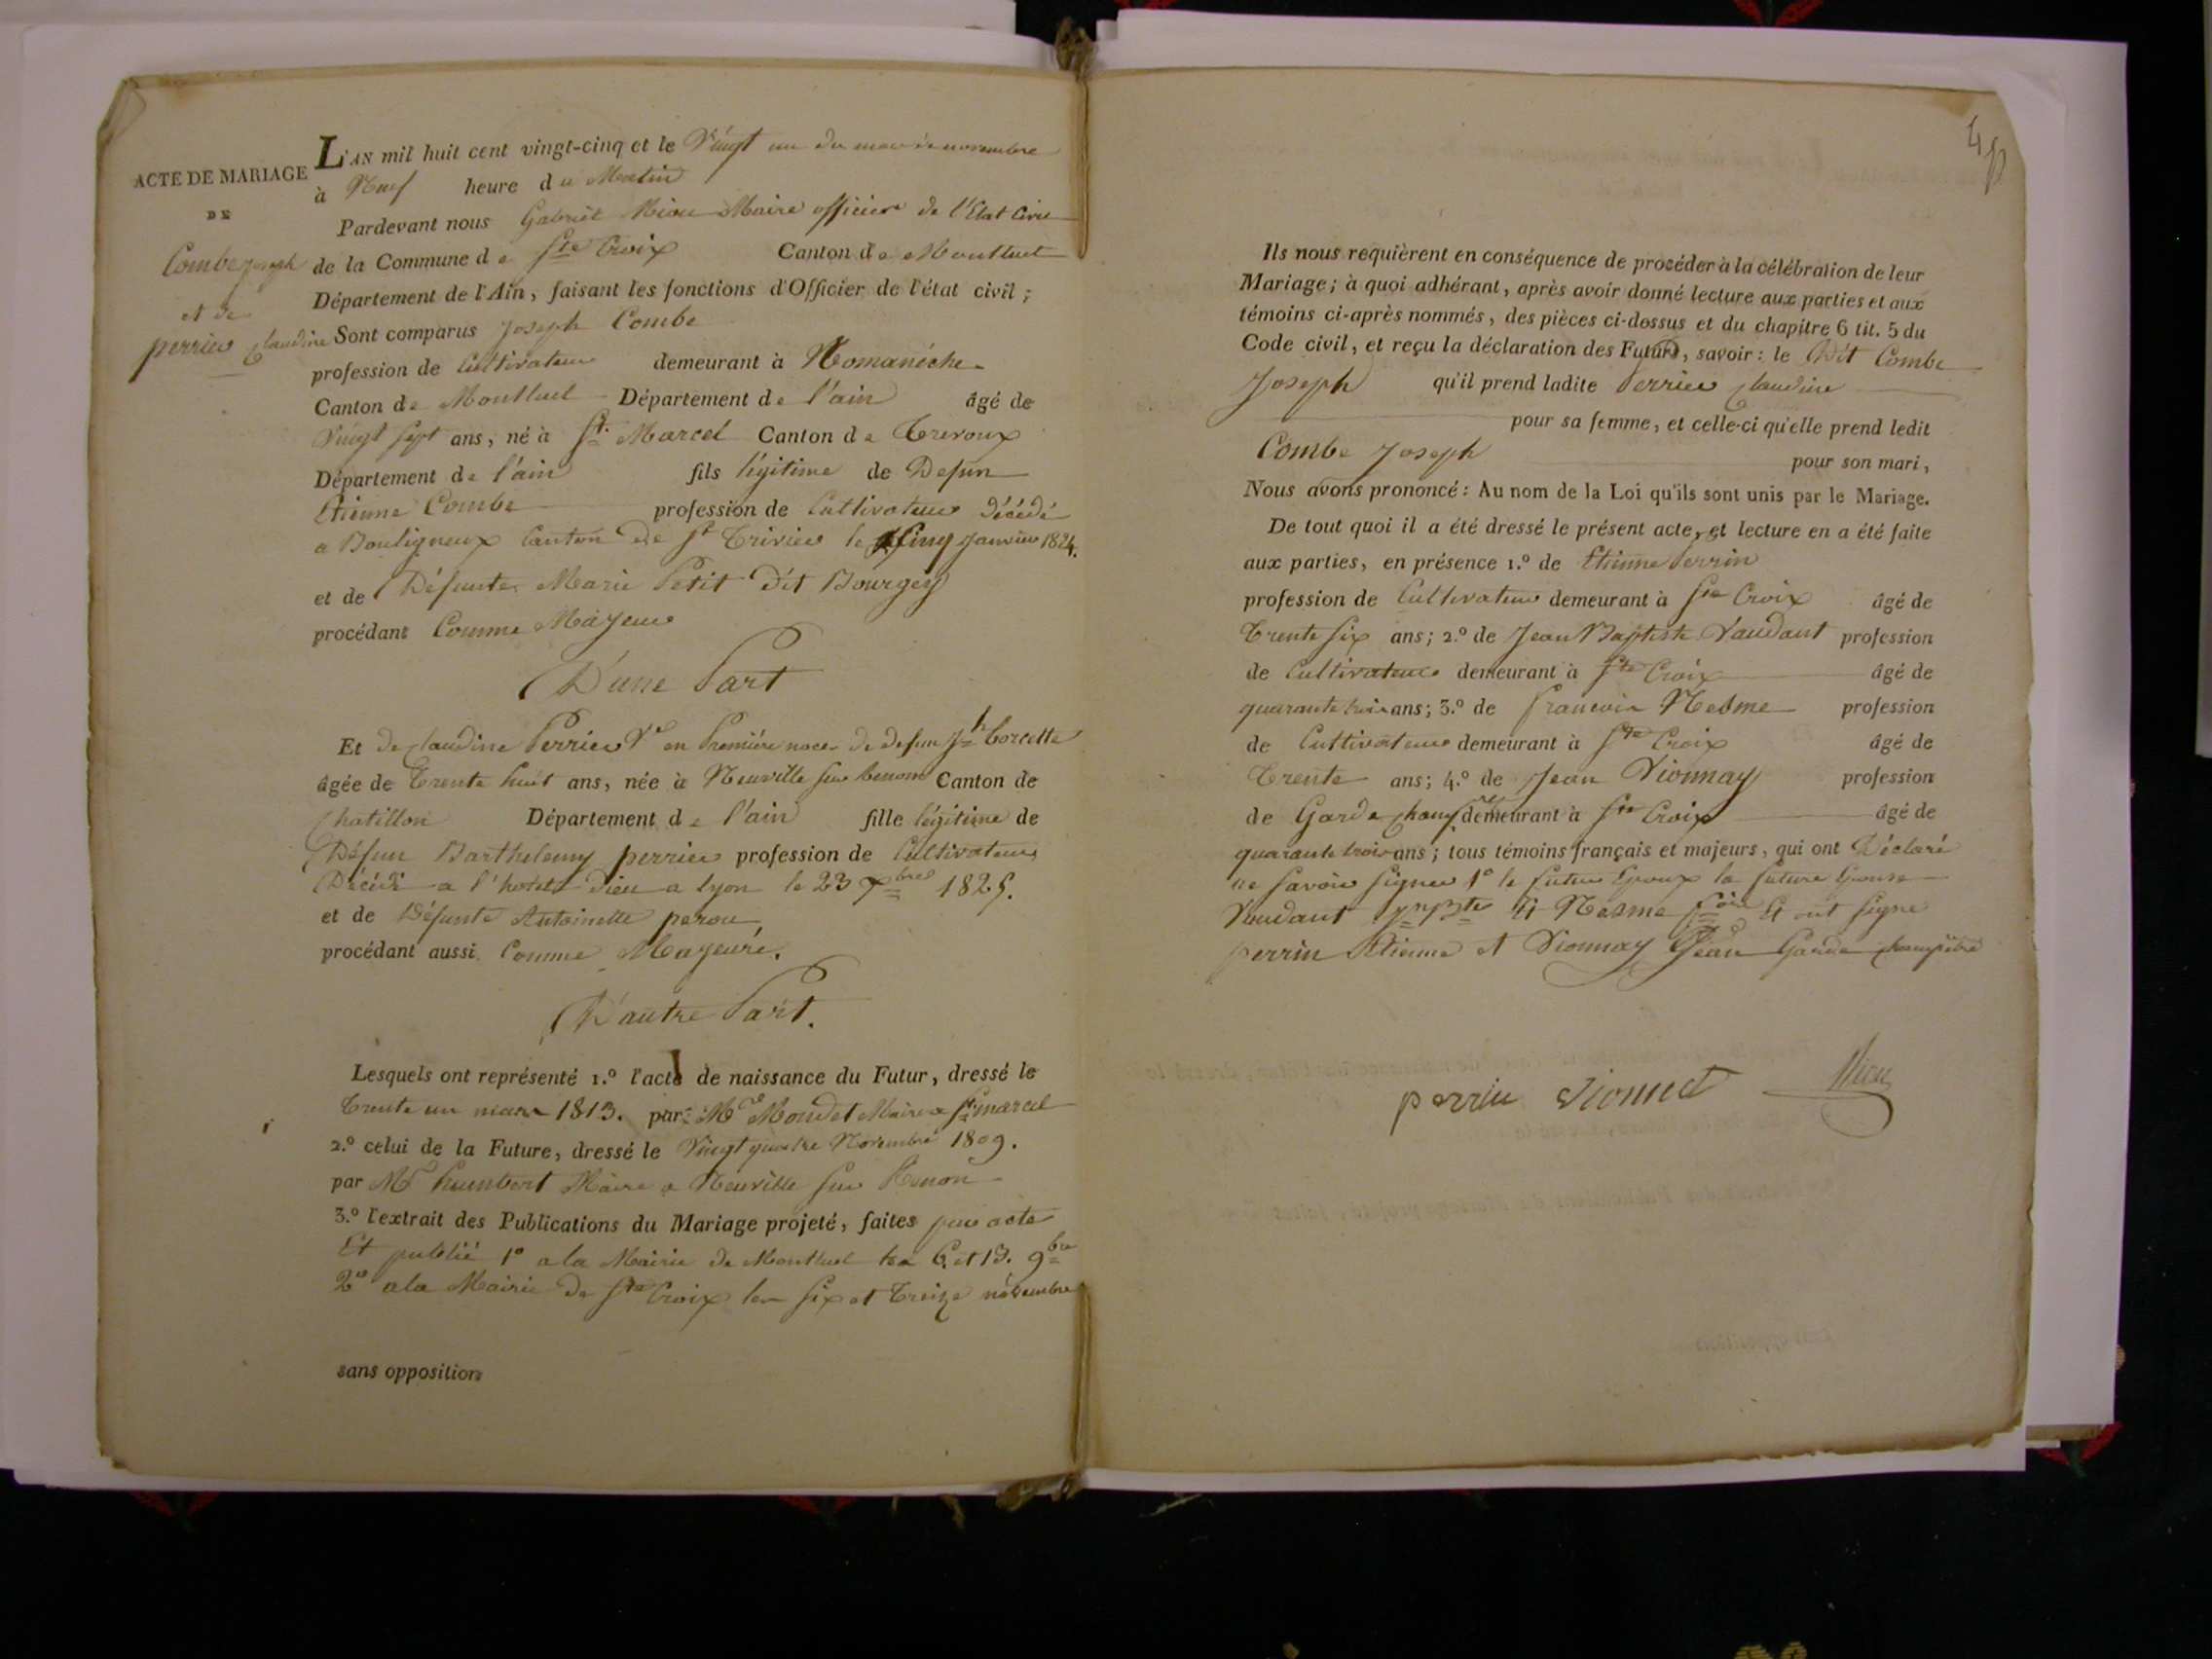 ACTE DE MARIAGE
DE
Combe Joseph
et de
perrier Claudine
L'AN mil huit cent vingt-cinq et le Vingt un du mois de novembre
à Neuf heure du Matin
Pardevant nous Gabriel Miou Maire officier de l'Etat Civil
de la Commune de Ste Croix Canton de Montluel
Département de l'Ain, faisant les fonctions d'Officier de l'état civil;
Sont comparus Joseph Combe
profession de Cultivateur demeurant à Romanéche
Canton de Montluel Département de l'ain âgé de
Vingt sept ans, né à St. Marcel Canton de Trevoux
Département de l'ain fils légitime de Defun
Etienne Combe profession de Cultivateur décédé
a Bouligneux Canton de St Trivier le Cinq Janvier 1824.
et de Défunte Marie Petit dit Bourgey
procédant Comme Majeur
D'une Part
Et de Claudine Perrier Ve en Première noces de defun Jh Corcette
âgée de Trente huit ans, née à Neuville sur Renom Canton de
Chatillon Département de l'ain fille légitime de
Défun Barthelemy perrier profession de Cultivateur
Décédé a l'hotel dieu a lyon le 23 7bre 1825.
et de Défunte Antoinette perou
procédant aussi Comme Majeure.
D'autre Part.
Lesquels ont représenté 1.º l'acte de naissance du Futur, dressé le
Trente un mars 1813. par Mr Moudet Maire a St marcel
2.º celui de la Future, dressé le Vingt quatre Novembre 1809.
par Mr humbert Maire a Neuville sur Renon
3.º l'extrait des Publications du Mariage projeté, faites par acte
Et publié 1º a la Mairie de Montluel les 6 et 13. 9bre
2º a la Mairie de Ste Croix les six et Treize novembre
sans opposition
Ils nous requièrent en conséquence de procéder à la célébration de leur
Mariage; à quoi adhérant, après avoir donné lecture aux parties et aux
témoins ci-après nommés, des pièces ci-dessus et du chapitre 6 tit. 5 du
Code civil, et reçu la déclaration des Futurs, savoir: le Dit Combe
Joseph qu'il prend ladite Perrier Claudine
pour sa femme, et celle-ci qu'elle prend ledit
Combe Joseph pour son mari,
Nous avons prononcé: Au nom de la Loi qu'ils sont unis par le Mariage.
De tout quoi il a été dressé le présent acte, et lecture en a été faite
aux parties, en présence 1.º de Etienne Perrin
profession de Cultivateur demeurant à Ste Croix âgé de
Trente six ans; 2.º de Jean Baptiste Vaudant profession
de Cultivateur demeurant à Ste Croix âgé de
quarante trois ans; 3.º de francois Nesme profession
de Cultivateur demeurant à Ste Croix âgé de
Trente ans; 4.º de Jean Vionnay profession
de Garde demeurant à Ste Croix âgé de
quarante trois ans; tous témoins français et majeurs, qui ont Déclaré
ne savoir signer 1º le futur Epoux la future Epouse
Vaudant Jn Bte Et Nesme fois Et ont signé
perrin Etienne et Vionnay Jean Garde champêtre
perrin vionnet Miou